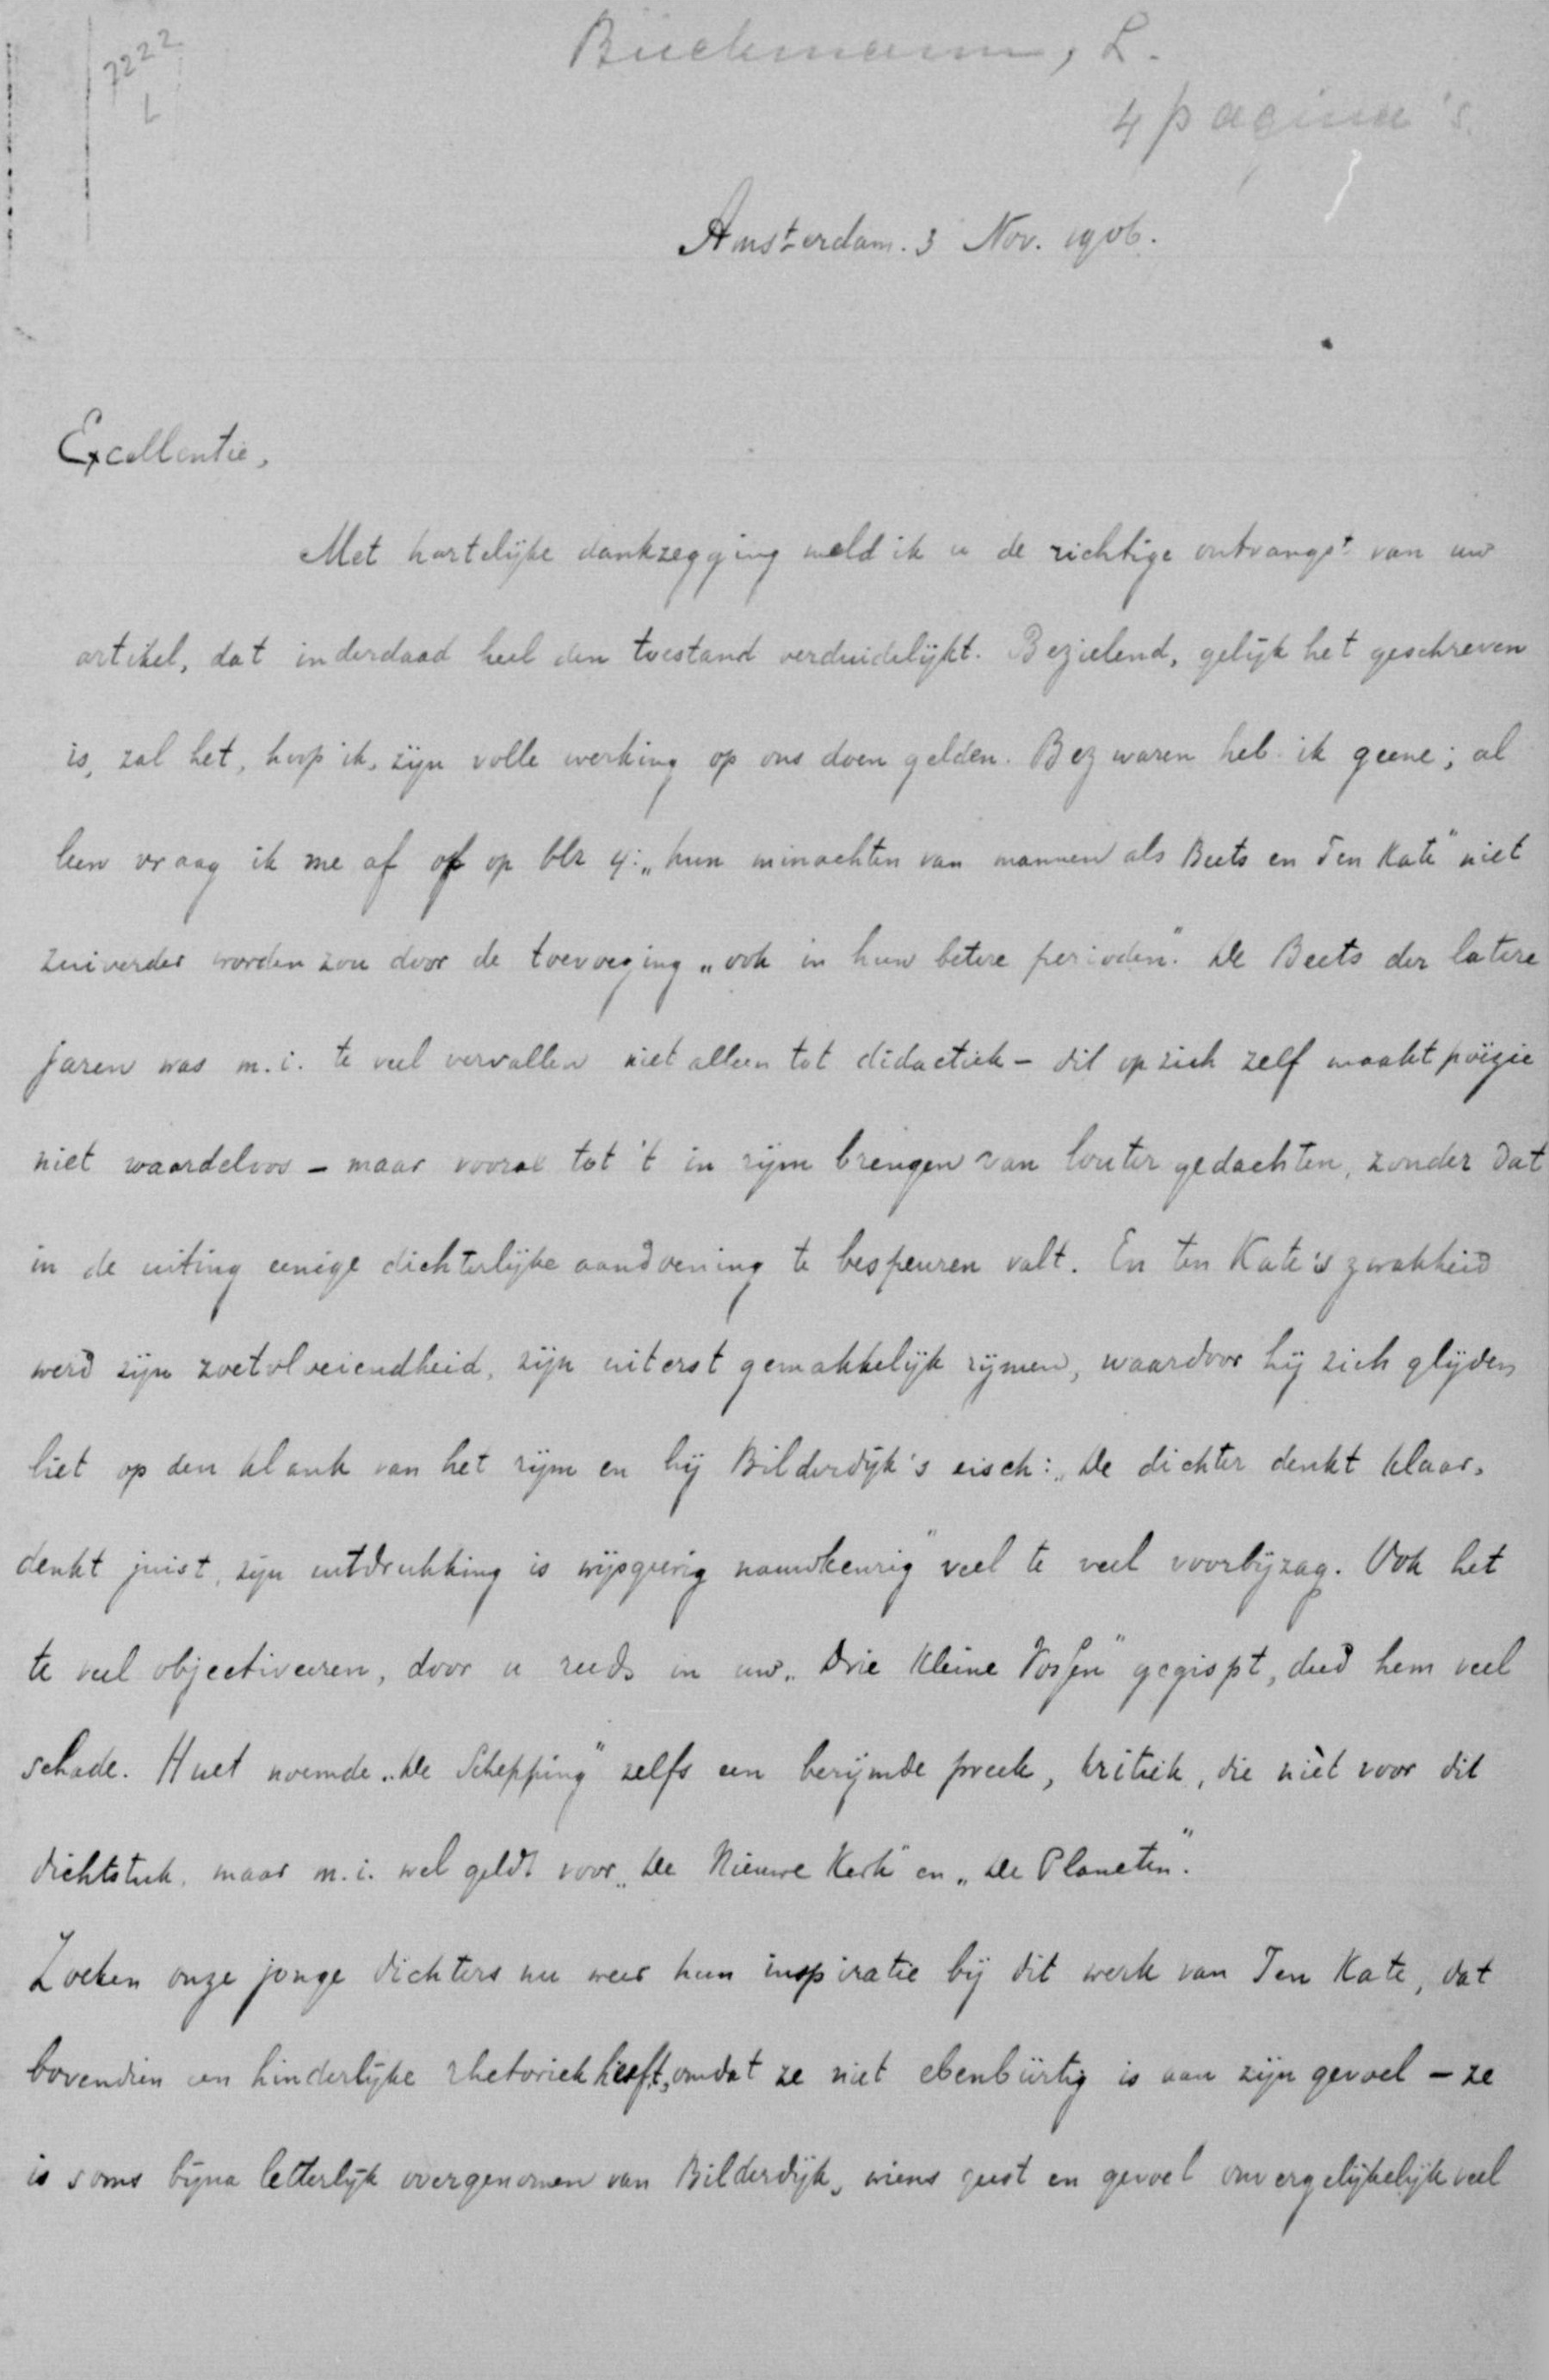 7222
L
Bückmann, L.
4 pagina's.
Amsterdam. 3 Nov. 1906.
Excellentie,
Met hartelijke dankzegging meld ik u de richtige ontvangst van uw
artikel, dat inderdaad heel den toestand verduidelijkt. Bezielend, gelijk het geschreven
is, zal het, hoop ik, zijn volle werking op ons doen gelden. Bezwaren heb ik geene; al
leen vraag ik me af of op blz 4: „hun minachten van mannen als Beets en Ten Kate" niet
zuiverder worden zou door de toevoeging „ook in hun betere perioden". De Beets der latere
jaren was m.i. te veel vervallen niet alleen tot didactiek – dit op zich zelf maakt poëzie
niet waardeloos – maar vooral tot 't in rijm brengen van louter gedachten, zonder dat
in de uiting eenige dichterlijke aandoening te bespeuren valt. En ten Kate's zwakheid
werd zijn zoetvloeiendheid, zijn uiterst gemakkelijk rijmen, waardoor hij zich glijden
liet op den klank van het rijm en hij Bilderdijk's eisch: „De dichter denkt klaar,
denkt juist, zijn uitdrukking is wijsgeerig nauwkeurig" veel te veel voorbijzag. Ook het
te veel objectiveeren, door u reeds in uw „Drie Kleine Vossen" gegispt, deed hem veel
schade. Huet noemde „De Schepping" zelfs een berijmde preek, kritiek, die niet voor dit
dichtstuk, maar m.i. wel geldt voor „De Nieuwe Kerk" en „De Planeten".
Zoeken onze jonge dichters nu weer hun inspiratie bij dit werk van Ten Kate, dat
bovendien een hinderlijke rhetoriek heeft, omdat ze niet ebenbürtig is aan zijn gevoel – ze
is soms bijna letterlijk overgenomen van Bilderdijk, wiens geest en gevoel onvergelijkelijk veel